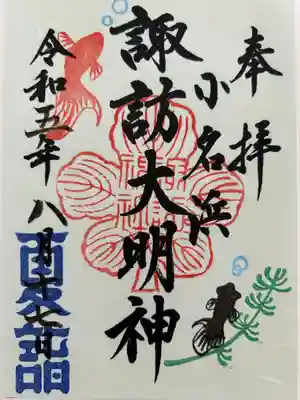 奉拝
小名浜
諏訪大明神
令和五年八月十七日